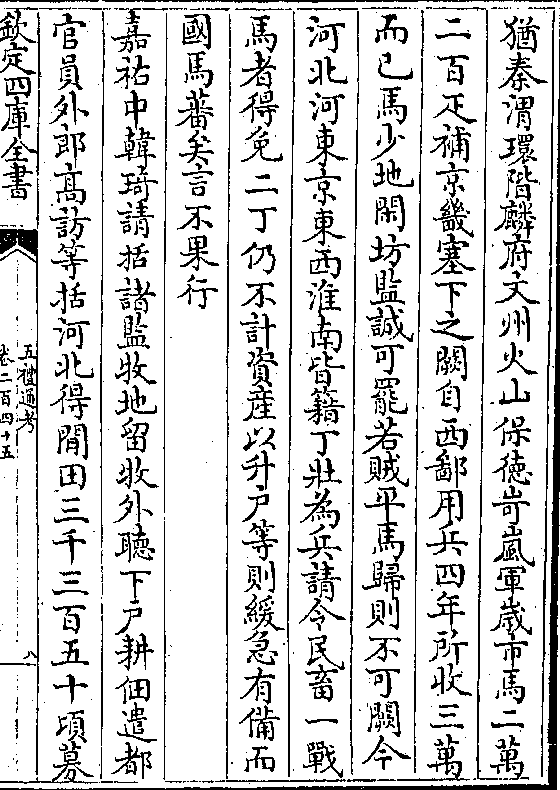 猶秦渭環階麟府文州火山保徳岢嵐軍嵗市馬二萬
二百疋補京畿塞下之闕自西鄙用兵四年所收三萬
而已馬少地閑坊監誠可罷若賊平馬歸則不可闕今
河北河東京東西淮南皆籍丁壯為兵請令民畜一戰
馬者得免二丁仍不計資産以升户等則緩急有備而
國馬蕃矣言不果行
嘉祐中韓琦請括諸監牧地留牧外聴下户耕佃遣都
官員外郎髙訪等括河北得閒田三千三百五十頃募
欽定四庫全書
五禮通考
卷二百四十五
八